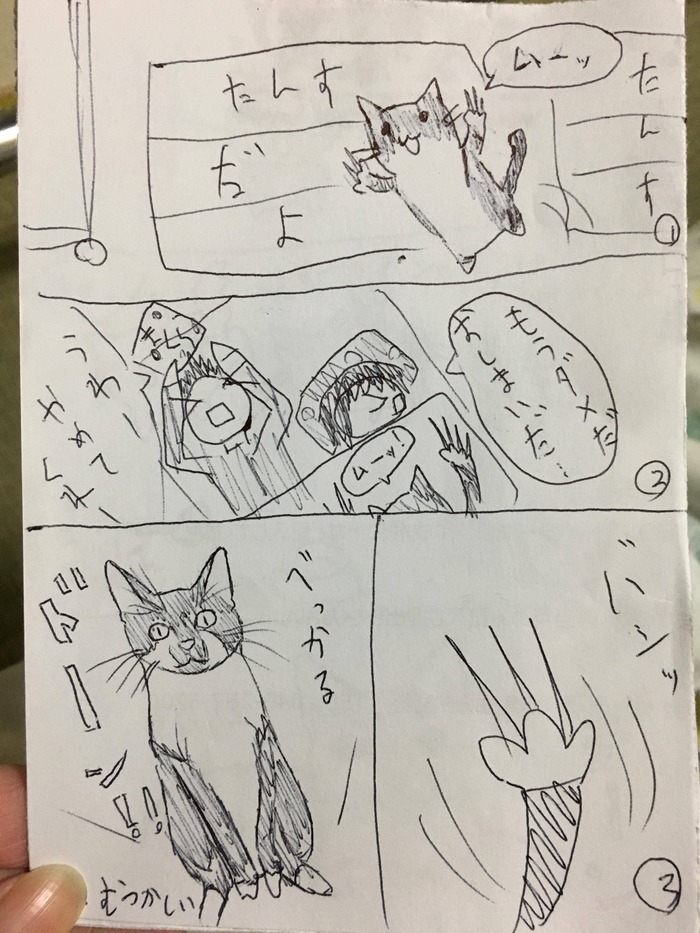 たんす
①
ムーッ
たんす
だ
よ
もうダメだ
おしまいだ…
②
ムーッ!
うわー
やめてくれ
③
べっかる
ドーン!!
むつかしい